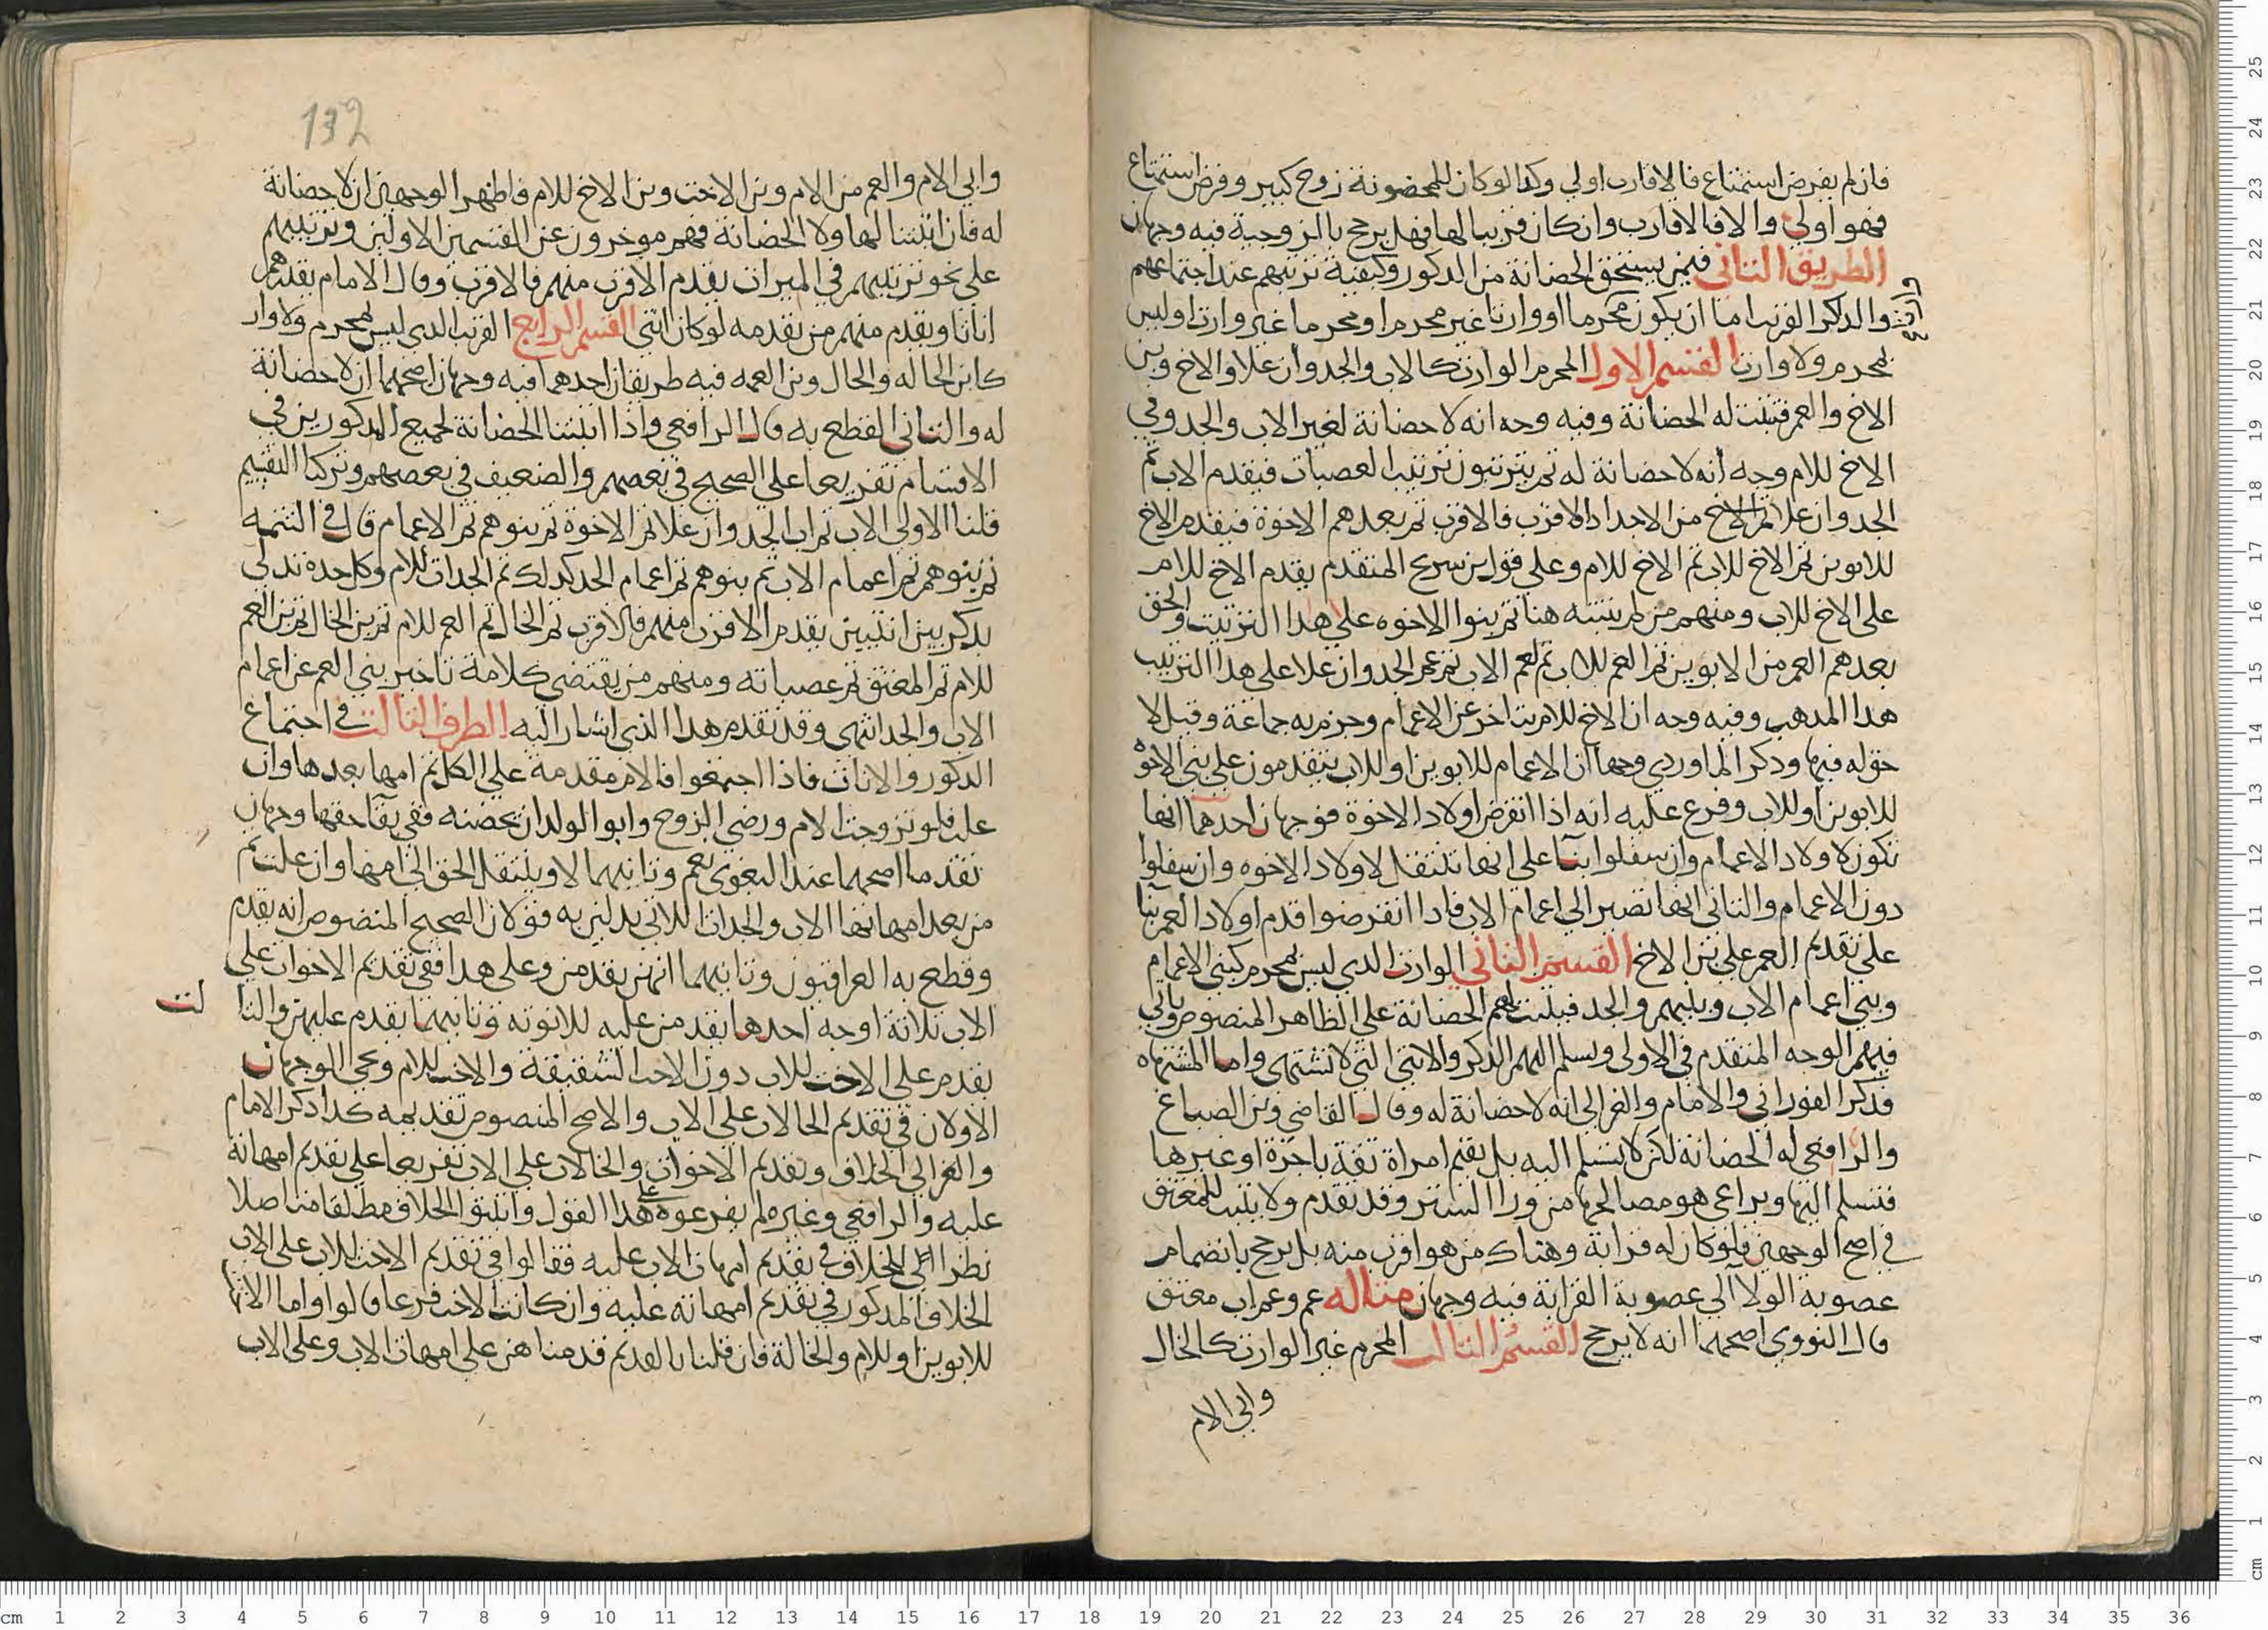 فان لم يفرض استمتاع فالاقارب اولى وكذا لوكان للمحضونة زوج كبير وفرض استمتاع
فهو اولى والا فالاقارب وان كان قريبا لها فهل يرجح بالزوجية فيه وجهان
الطريق الثاني فيمن يستحق الحضانة من الذكور وكيفية ترتيبهم عند اجتماعهم
والذكر القريب اما ان يكون محرما او وارثا غير محرم او محرما غير وارث او ليس
بمحرم ولا وارث القسم الاول المحرم الوارث كالاب والجد وان علا والاخ وبن
الاخ والعم فتثبت له الحضانة وفيه وجه انه لا حضانة لغير الاب والجد وفي
الاخ للام وجه انه لا حضانة له ثم يترتبون ترتيب العصبات فيقدم الاب ثم
الجد وان علا من الاجداد الاقرب فالاقرب ثم بعدهم الاخوة فيقدم الاخ
للابوين ثم الاخ للاب ثم الاخ للام وعلى قول بن سريج المتقدم يقدم الاخ للام
على الاخ للاب ومنهم من لم يثبته هنا ثم بنوا الاخوه على هذا الترتيب والحق
بعدهم العم من الابوين ثم العم للاب ثم لعم الاب ثم عم الجد وان علا على هذا الترتيب
هذا المذهب وفيه وجه ان الاخ للام يتاخر عن الاعمام وجزم به جماعة وقيل لا
حق له فيها وذكر الماوردي وجها ان الاعمام للابوين او للاب يتقدمون على بني الاخوة
للابوين او للاب وفرع عليه انه اذا انقرض اولاد الاخوة فوجهان احدهما انها
تكون لاولاد الاعمام وان سفلوا بنا على انها تنتقل لاولاد الاخوه وان سفلوا
دون الاعمام والثاني انها تصير الى اعمام الاب فاذا انقرضوا قدم اولاد العم بنا
على تقديم العم على بن الاخ القسم الثاني الوارث الذي ليس بمحرم كبني الاعمام
وبني اعمام الاب وبنيهم والجد فيثبت لهم الحضانة على الظاهر المنصوص وياتي
فيهم الوجه المتقدم في الاولى ويسلم اليهم الذكر والانثى التي لا تشتهى واما المشتهاه
فذكر الفوراني والامام والغزالي انه لا حضانة له وقال القاضي وبن الصباغ
والرافعي له الحضانة لكن لا تسلم اليه بل يقيم امراة ثقة باجرة او غيرها
فتسلم اليها ويراعي هو مصالحها من ورا الستر وقد تقدم ولا يثبت للمعتق
في اصح الوجهين فلو كان له قرابة وهناك من هو اقرب منه بل يرجح بانضمام
عصوبة الولا الى عصوبة القرابة فيه وجهان مثاله عم وعم اب معتق
قال النووي اصحهما انه لا يرجح القسم الثالث المحرم غير الوارث كالخال
وابي الام
132
وابي الام والعم من الام وبن الاخت وبن الاخ للام فاظهر الوجهين ان لا حضانة
له فان اثبتنا لها ولا الحضانة فهم موخرون عن القسمين الاولين وترتيبهم
على نحو ترتيبهم في الميراث يقدم الاقرب منهم فالاقرب وقال الامام يقدرهم
اناثا ويقدم منهم من نقدمه لو كان انثى القسم الرابع القريب الذي ليس بمحرم ولا وارث
كابن الخاله والخال وبن العمه فيه طريقان احدهما فيه وجهان اصحهما ان لا حضانة
له والثاني القطع به قال الرافعي واذا اثبتنا الحضانة لجميع المذكورين في
الاقسام تفريعا على الصحيح في بعضهم والضعيف في بعضهم وتركنا التقييم
قلنا الاولى الاب ثم اب الجد وان علا ثم الاخوة ثم بنوهم ثم الاعمام قال في التتمه
ثم بنوهم ثم اعمام الاب ثم بنوهم ثم اعمام الجد كذلك ثم الجدات للام وكل جده تدلي
بذكر بين انثيين يقدم الاقرب منهم فالاقرب ثم الخال ثم العم للام ثم بن الخال ثم بن العم
للام ثم المعتق ثم عصباته ومنهم من يقتضي كلامة تاخير بني العم عن اعمام
الاب والجد انتهى وقد تقدم هذا الذي اشار اليه الطرف الثالث في اجتماع
الذكور والاناث فاذا اجتمعوا فالام مقدمة على الكل ثم امها بعدها وان
علت فلو تزوجت الام ورضي الزوج وابو الولد ان تحضنه ففي بقا حقها وجهان
تقدما اصحهما عند البغوي نعم وثانيهما لا وينتقل الحق الى امها وان علت ثم
من بعد امهاتها الاب والجدات اللاتي يدلين به قولان الصحيح المنصوص انه يقدم
وقطع به العراقيون وثانيهما انهن يقدمن وعلى هذا ففي تقديم الاخوات على
الاب ثلاثة اوجه احدها يقدمن عليه للانوثه وثانيهما يقدم عليهن والثا لث
يقدم على الاخت للاب دون الاخت الشقيقة والاخت للام ويجي الوجهان
الاولان في تقديم الخالات على الاب والاصح المنصوص تقديمه كذا ذكر الامام
والغزالي الخلاف وتقديم الاخوات والخالات على الاب تفريعا على تقديم امهاته
عليه والرافعي وغيره لم يفرعوه على هذا القول واثبتوا الخلاف مطلقا منا صلا
نظرا الى الخلاف في تقديم امهات الاب عليه فقالوا في تقديم الاخت للاب على الاب
الخلاف المذكور في تقديم امهاته عليه وان كانت الاخت فرعا قالوا واما الاخت
للابوين او للام والخالة فان قلنا بالقديم قدمنا هن على امهات الاب وعلى الاب